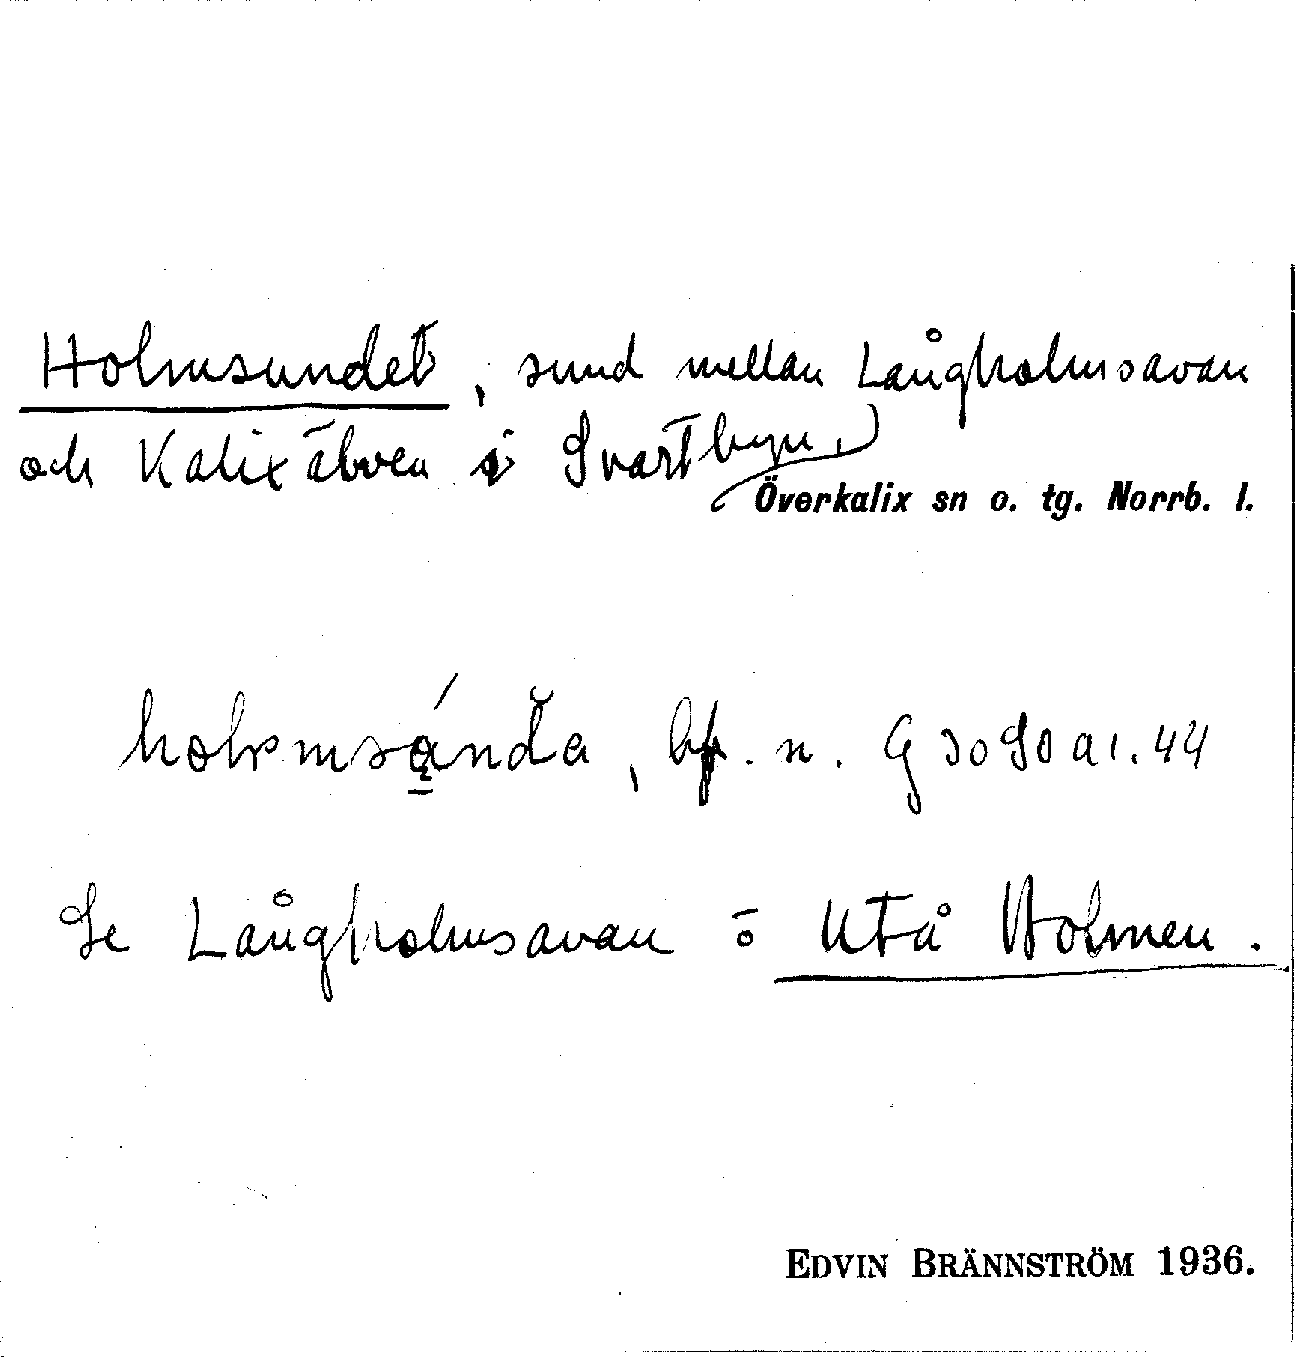 Holmsundet, sund mellan Långholmsavan
och Kalixälven i Svartbyn,
Överkalix sn o. tg. Norrb. l.
bf. n. G 30 90 a 1. 44
Se Långholmsavan o Utå Holmen.
EDVIN BRÄNNSTRÖM 1936.